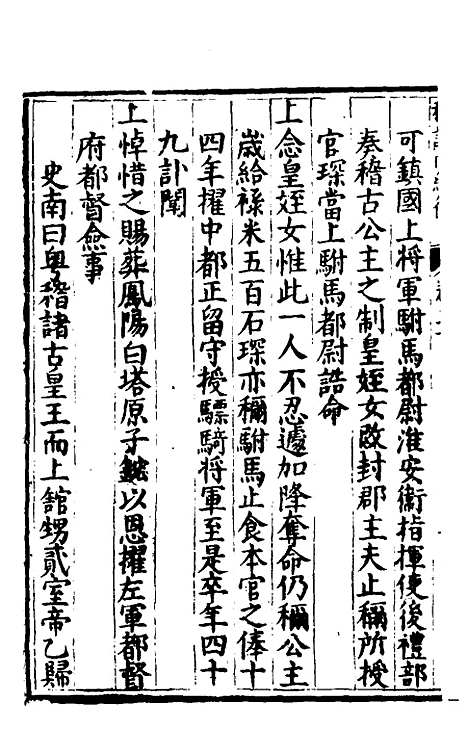 可鎮國上將軍駙馬都尉淮安衞指揮使後禮部
奏稽古公主之制皇姪女改封郡主夫止稱所授
官琛當上駙馬都尉誥命
上念皇姪女惟此一人不忍遽加降奪命仍稱公主
歲給祿米五百石琛亦稱駙馬止食本官之俸十
四年擢中都正留守授驃騎將軍至是卒年四十
九訃聞
上悼惜之賜葬鳳陽白塔原子鑑以恩擢左軍都督
府都督僉事
史南曰粤稽諸古皇王而上館甥貳室帝乙歸